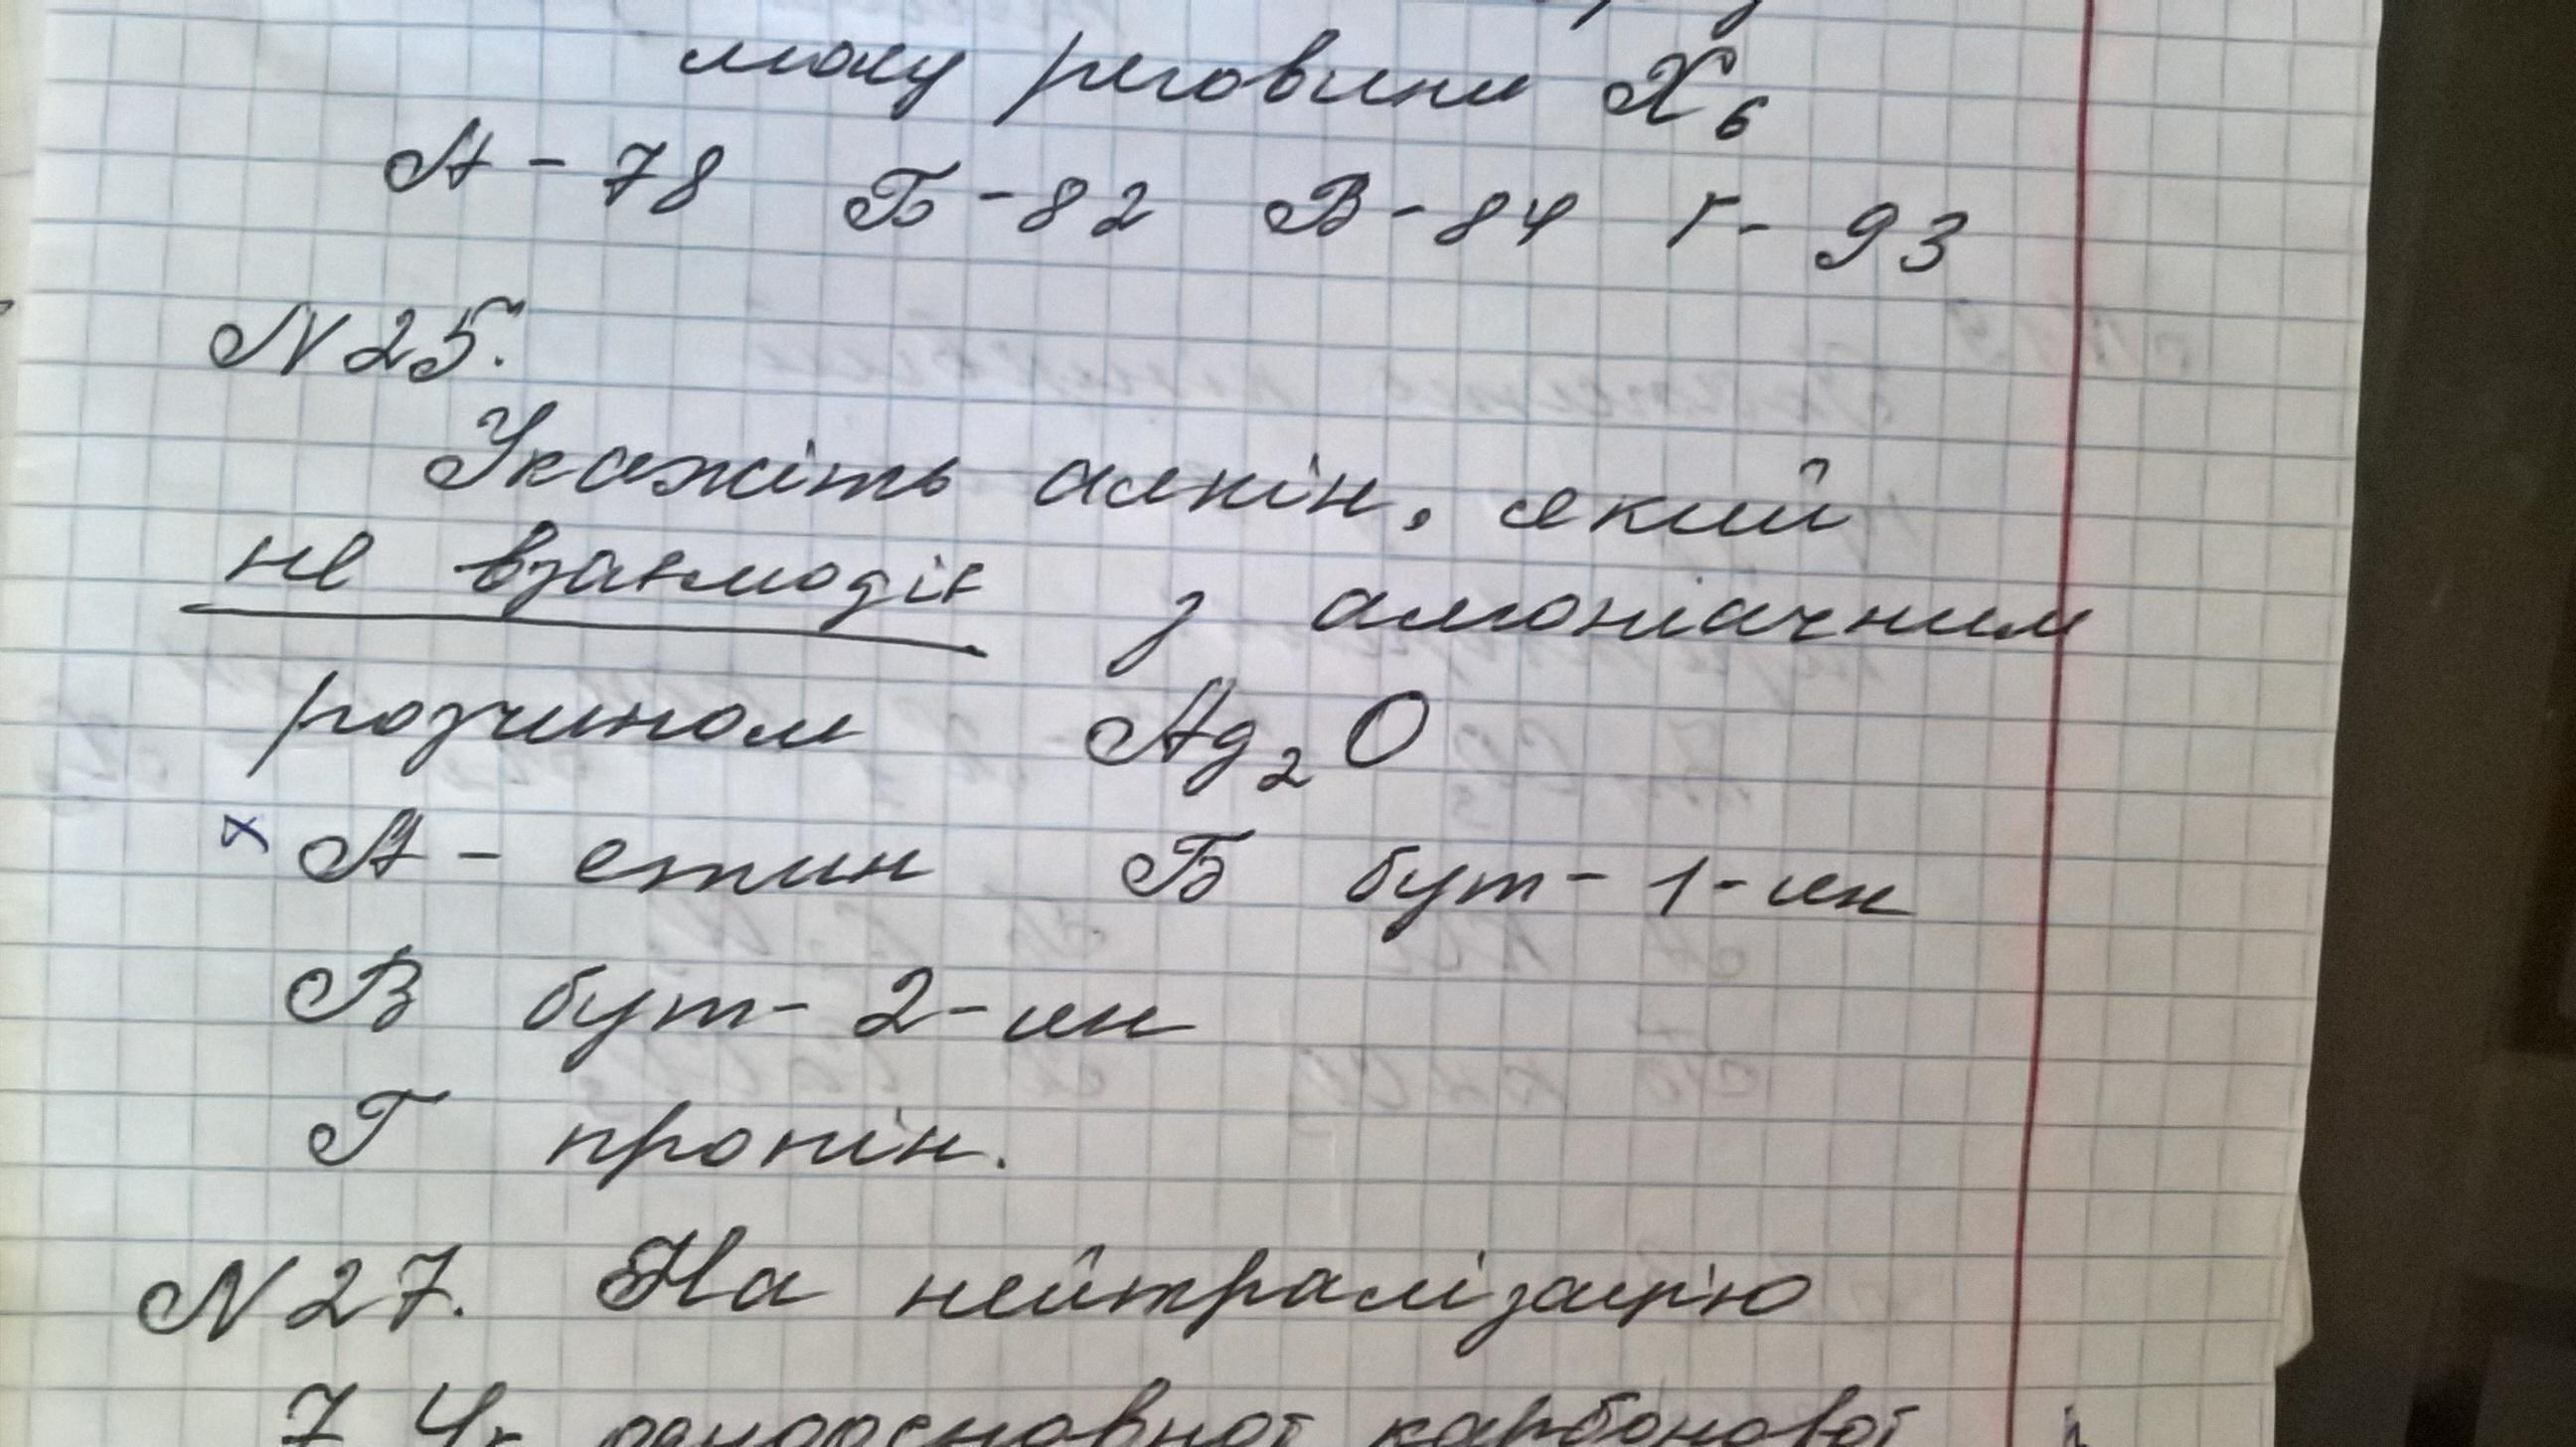 молу речовини X6
А - 78 Б - 82 В - 84 Г - 93
N 25.
Укажіть алкін, який
не взаємодіє з амоніачним
розчином Ag2O
x А - етин Б бут - 1 - ин
В бут - 2 - ин
Г пропін.
N 27. На нейтралізацію
7,4г одноосновної карбонової